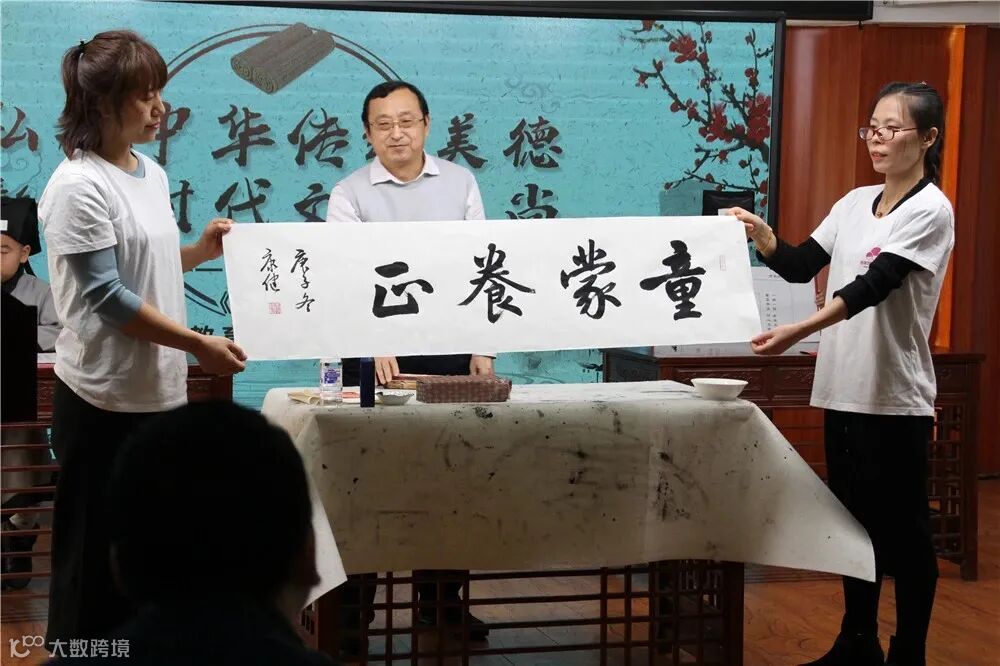 中华传 美德
时代文 尚
童蒙養正
庚子冬
康健
教育
大数跨境